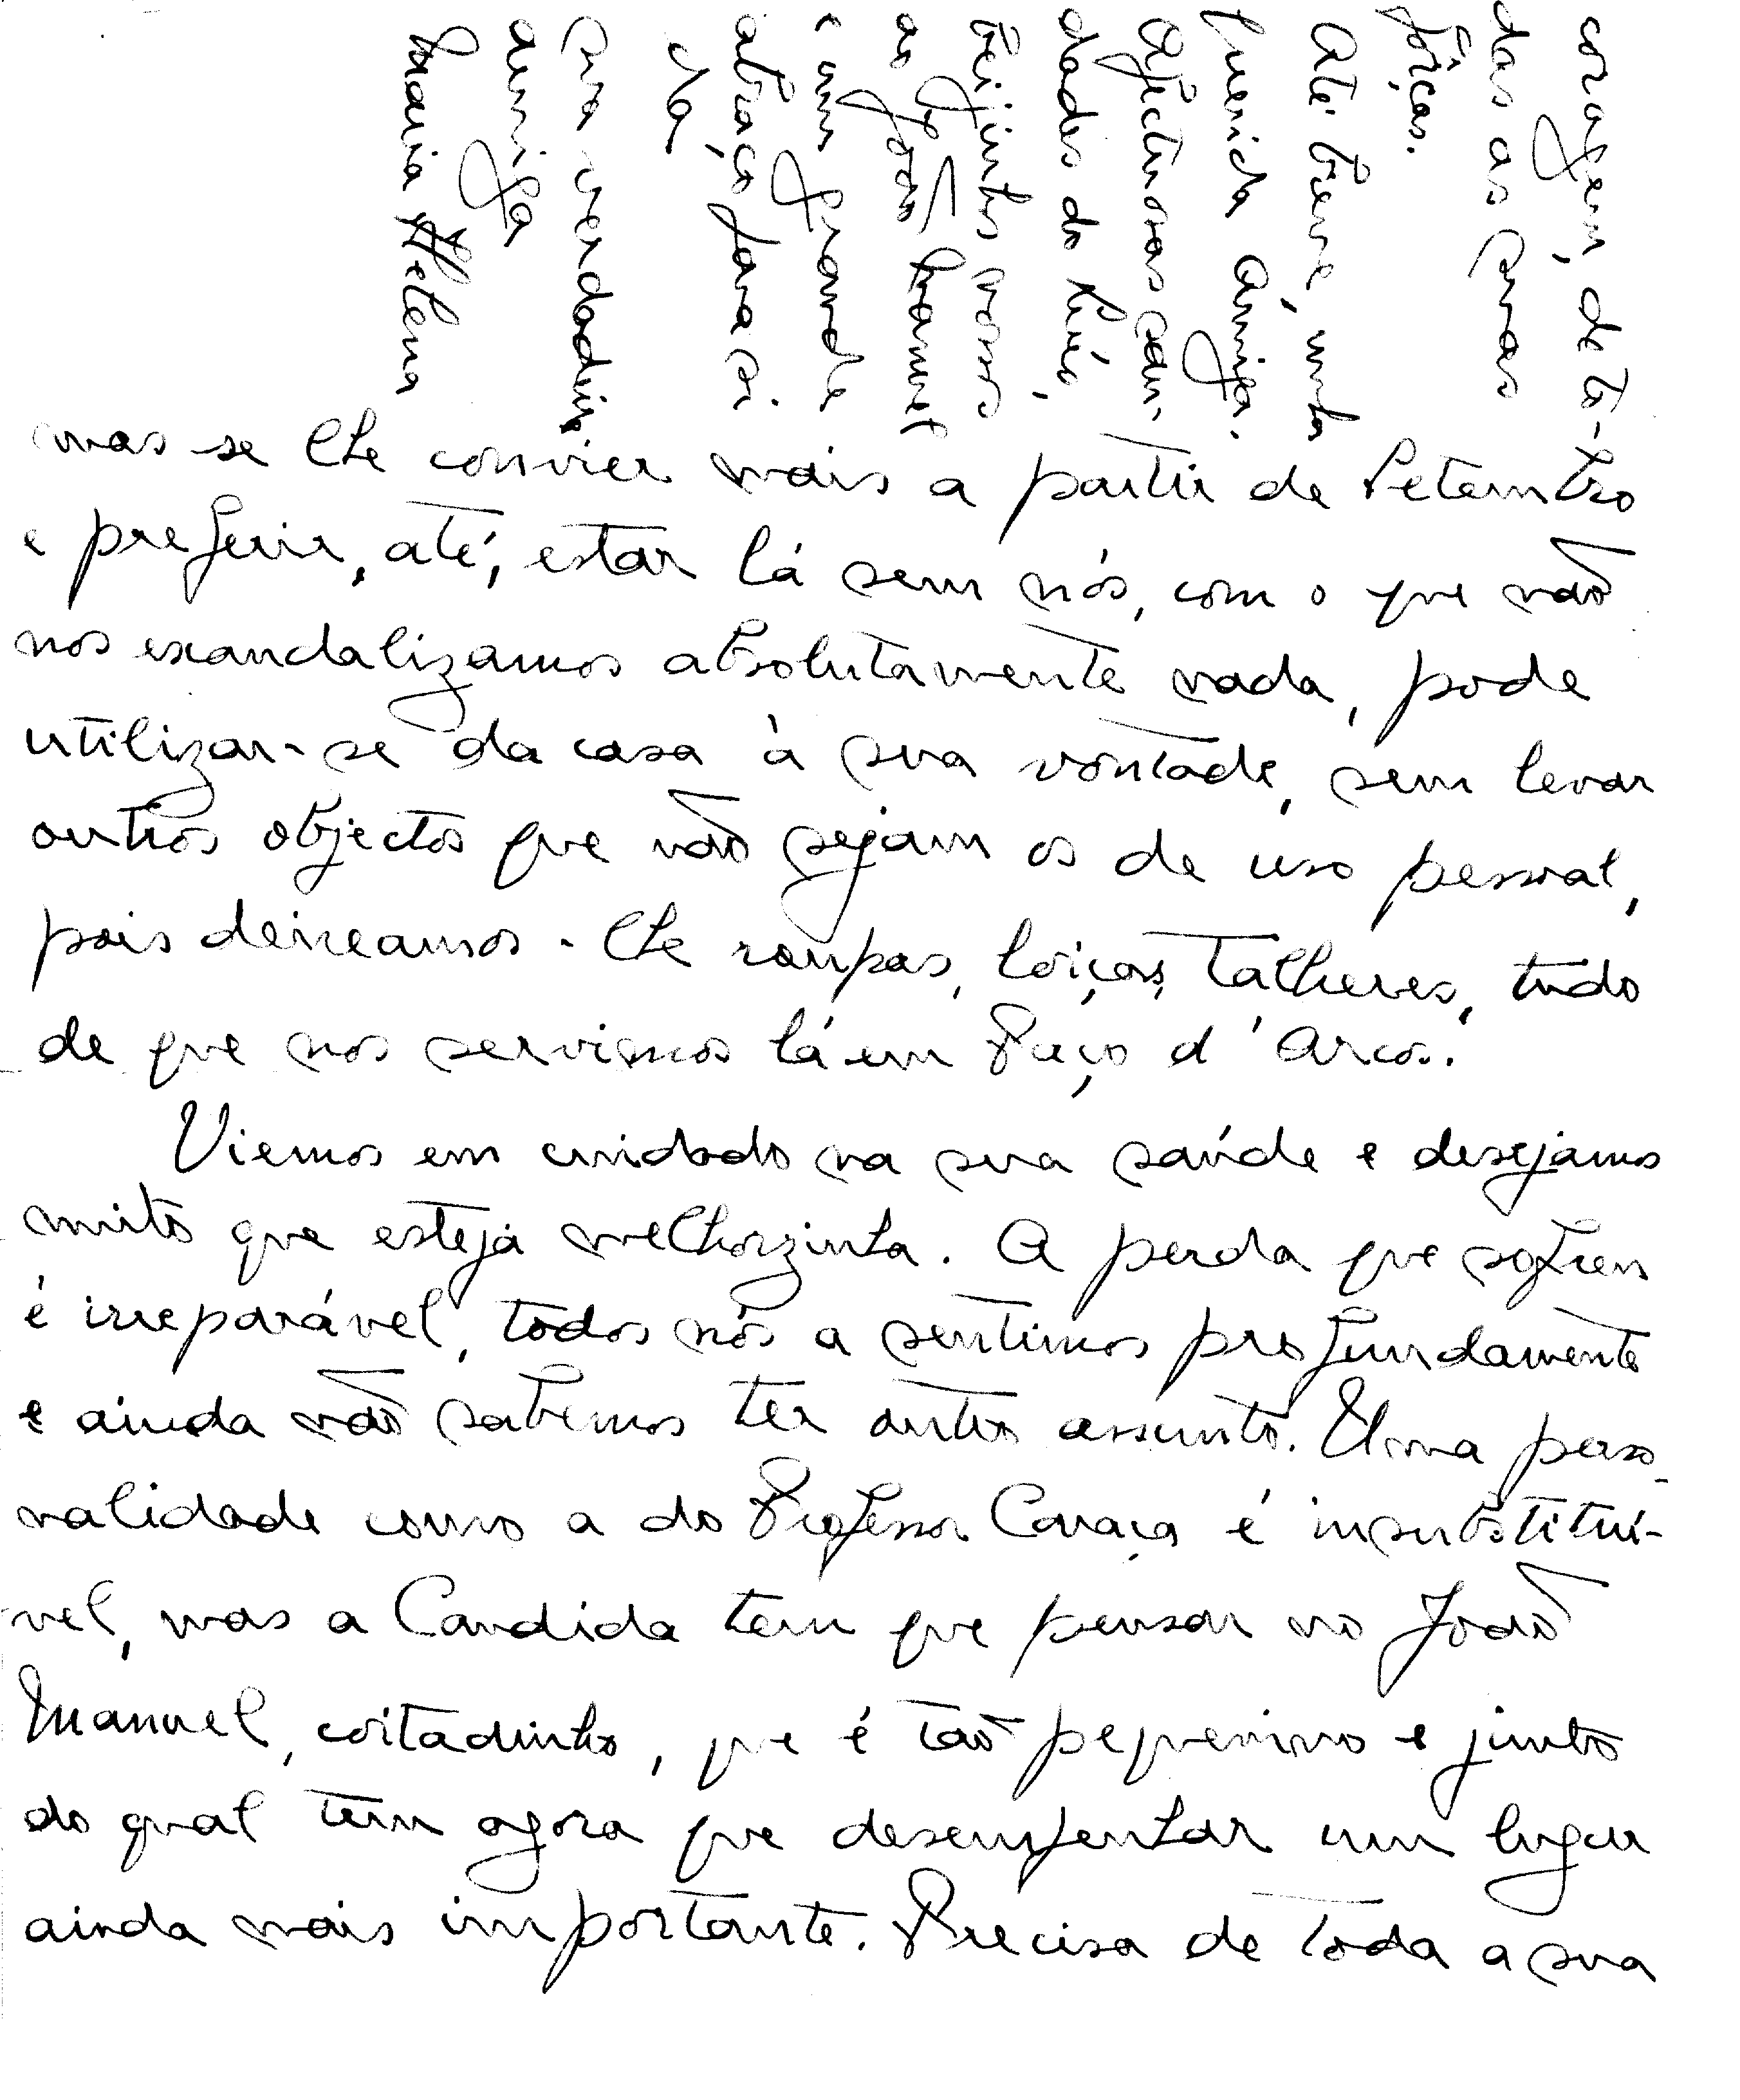 mas se lhe convier mais a partir de Setembro
e preferir, até, estar lá sem nós, com o que não
nos escandalizamos absolutamente nada, pode
utilizar-se da casa à sua vontade, sem levar
outros objectos que não sejam os de uso pessoal,
pois deixamos-lhe roupas, loiças, talheres, tudo
de que nos servimos lá em Paço d'Arcos.
Viemos em cuidado na sua saúde e desejamos
muito que esteja melhorzinha. A perda que sofreu
é irreparável, todos nós a sentimos profundamente
e ainda não sabemos ter outro assunto. Uma perso-
nalidade como a do Professor Caraça é insubstituí-
vel, mas a Candida tem que pensar no João
Manuel, coitadinho, que é tão pequenino e junto
do qual tem agora que desempenhar um lugar
ainda mais importante. Precisa de toda a sua
coragem, de to-
das as suas
fôrças.
Até breve, minha
querida Amiga.
Afectuosas sau-
dades do
beijinhos nossos
ao João Manuel
e um grande
abraço para si
da
sua verdadeira
amiga
Maria Helena